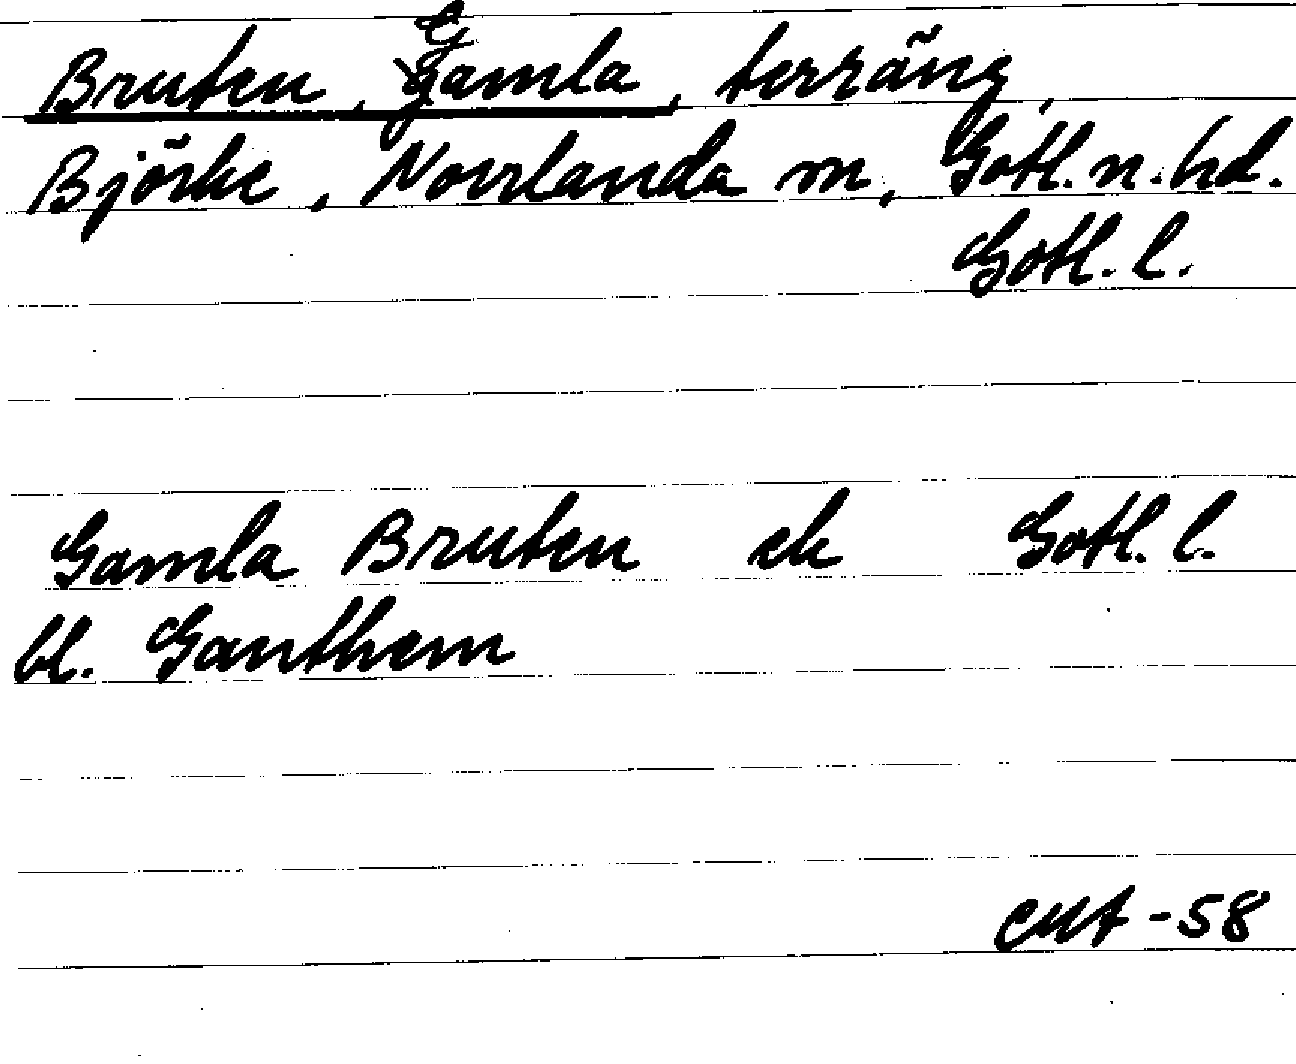 Bruten, Gamla, terräng,
Björke, Norrlanda sn, Gotl. n. hd.
Gotl. l.
Gamla Bruten ek Gotl. l.
bl. Ganthem
-58